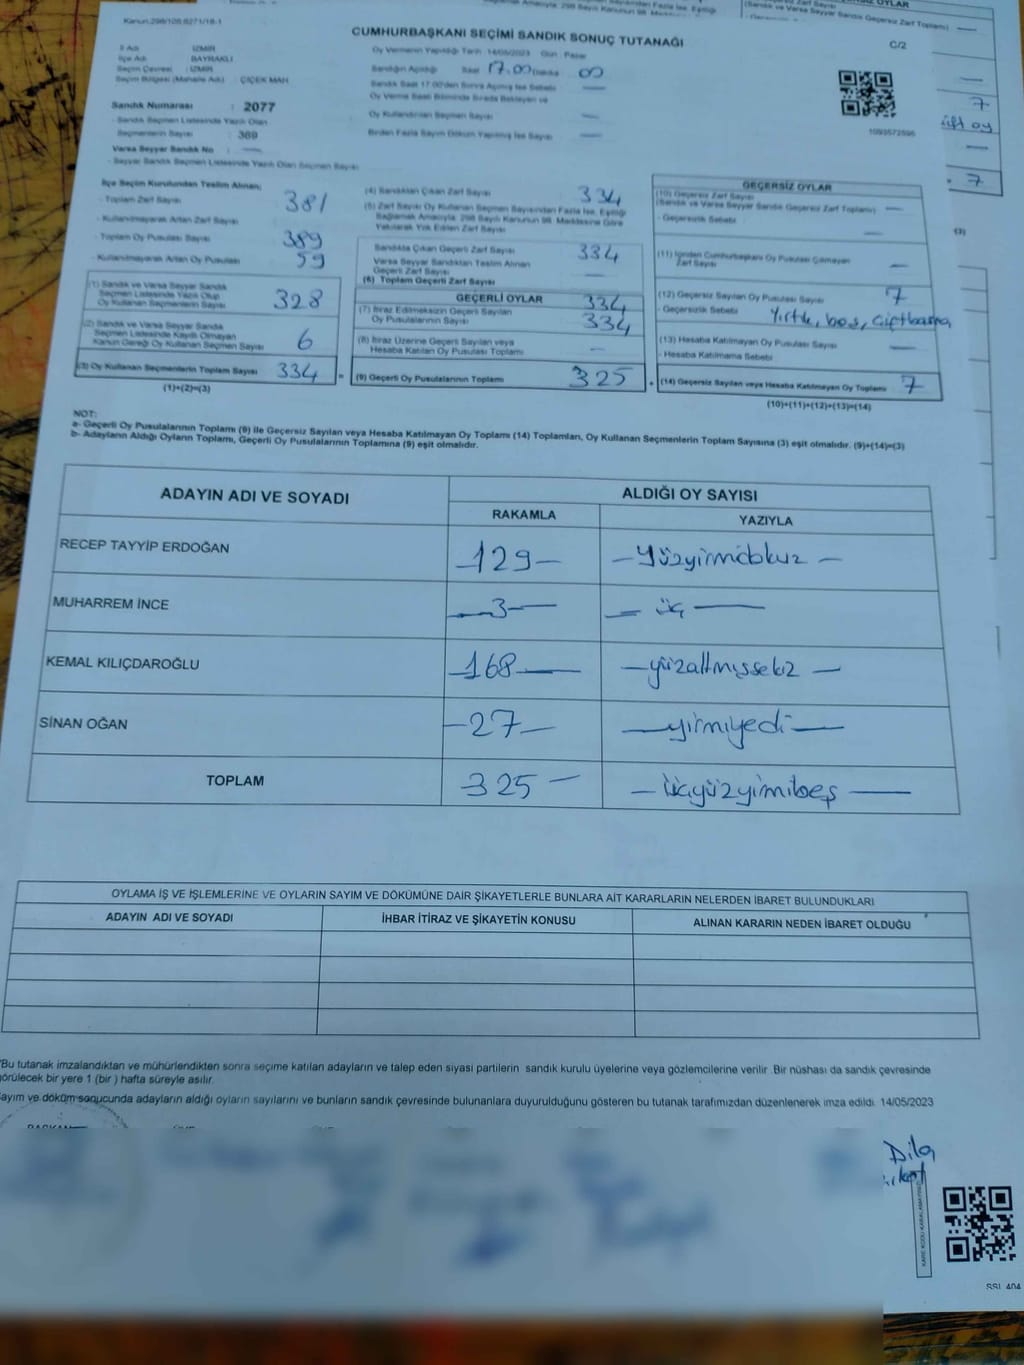 Kanun.298/105,6271/18-1
CUMHURBAŞKANI SEÇİMİ SANDIK SONUÇ TUTANAĞI
C/2
İl Adı : İZMİR
İlçe Adı : BAYRAKLI
Seçim Çevresi : İZMİR
Seçim Bölgesi (Mahalle Adı) : ÇİÇEK MAH
Oy Vermenin Yapıldığı Tarih :14/05/2023 Gün : Pazar
Sandığın Açıldığı Saat 17.00 Dakika 00
Sandık Saat 17.00'den Sonra Açılmış İse Sebebi
Oy Verme Saati Bitiminde Sırada Bekleyen ve
Oy Kullandırılan Seçmen Sayısı —
Birden Fazla Sayım Döküm Yapılmış İse Sayısı —
Sandık Numarası : 2077
- Sandık Seçmen Listesinde Yazılı Olan
Seçmenlerin Sayısı : 369
Varsa Seyyar Sandık No : —
- Seyyar Sandık Seçmen Listesinde Yazılı Olan Seçmen Sayısı
1093572595
İlçe Seçim Kurulundan Teslim Alınan;
- Toplam Zarf Sayısı 381
- Kullanılmayarak Artan Zarf Sayısı
- Toplam Oy Pusulası Sayısı 389
- Kullanılmayarak Artan Oy Pusulası 59
(1) Sandık ve Varsa Seyyar Sandık
Seçmen Listesinde Yazılı Olup
Oy Kullanan Seçmenlerin Sayısı 328
(2) Sandık ve Varsa Seyyar Sandık
Seçmen Listesinde Kayıtlı Olmayan
Kanun Gereği Oy Kullanan Seçmen Sayısı 6
(3) Oy Kullanan Seçmenlerin Toplam Sayısı 334
(1)+(2)=(3)
(4) Sandıktan Çıkan Zarf Sayısı 334
(5) Zarf Sayısı Oy Kullanan Seçmen Sayısından Fazla İse, Eşitliği
Sağlamak Amacıyla; 298 Sayılı Kanunun 98. Maddesine Göre
Yakılarak Yok Edilen Zarf Sayısı
Sandıkta Çıkan Geçerli Zarf Sayısı 334
Varsa Seyyar Sandıktan Teslim Alınan
Geçerli Zarf Sayısı —
(6) Toplam Geçerli Zarf Sayısı 334
GEÇERLİ OYLAR
(7) İtiraz Edilmeksizin Geçerli Sayılan
Oy Pusulalarının Sayısı 334
(8) İtiraz Üzerine Geçerli Sayılan veya
Hesaba Katılan Oy Pusulası Toplamı —
(9) Geçerli Oy Pusulalarının Toplamı 325
GEÇERSİZ OYLAR
(10) Geçersiz Zarf Sayısı
(Sandık ve Varsa Seyyar Sandık Geçersiz Zarf Toplamı) —
- Geçersizlik Sebebi —
(11) İçinden Cumhurbaşkanı Oy Pusulası Çıkmayan
Zarf Sayısı —
(12) Geçersiz Sayılan Oy Pusulası Sayısı 7
- Geçersizlik Sebebi Yırtık, boş, çiftbasma
(13) Hesaba Katılmayan Oy Pusulası Sayısı —
- Hesaba Katılmama Sebebi
(14) Geçersiz Sayılan veya Hesaba Katılmayan Oy Toplamı 7
(10)+(11)+(12)+(13)=(14)
NOT:
a- Geçerli Oy Pusulalarının Toplamı (9) ile Geçersiz Sayılan veya Hesaba Katılmayan Oy Toplamı (14) Toplamları, Oy Kullanan Seçmenlerin Toplam Sayısına (3) eşit olmalıdır. (9)+(14)=(3)
b- Adayların Aldığı Oyların Toplamı, Geçerli Oy Pusulalarının Toplamına (9) eşit olmalıdır.
ADAYIN ADI VE SOYADI ALDIĞI OY SAYISI
RAKAMLA YAZIYLA
RECEP TAYYİP ERDOĞAN 129 — — Yüzyirmidokuz —
MUHARREM İNCE — 3 — — üç —
KEMAL KILIÇDAROĞLU — 168 — — yüzaltmışsekiz —
SİNAN OĞAN — 27 — — yirmiyedi —
TOPLAM — 325 — — üçyüzyirmibeş —
OYLAMA İŞ VE İŞLEMLERİNE VE OYLARIN SAYIM VE DÖKÜMÜNE DAİR ŞİKAYETLERLE BUNLARA AİT KARARLARIN NELERDEN İBARET BULUNDUKLARI
ADAYIN ADI VE SOYADI İHBAR İTİRAZ VE ŞİKAYETİN KONUSU ALINAN KARARIN NEDEN İBARET OLDUĞU
Bu tutanak imzalandıktan ve mühürlendikten sonra seçime katılan adayların ve talep eden siyasi partilerin sandık kurulu üyelerine veya gözlemcilerine verilir .Bir nüshası da sandık çevresinde
görülecek bir yere 1 (bir ) hafta süreyle asılır.
ayım ve döküm sonucunda adayların aldığı oyların sayılarını ve bunların sandık çevresinde bulunanlara duyurulduğunu gösteren bu tutanak tarafımızdan düzenlenerek imza edildi. 14/05/2023
BAŞKAN
Dila
SSL 404